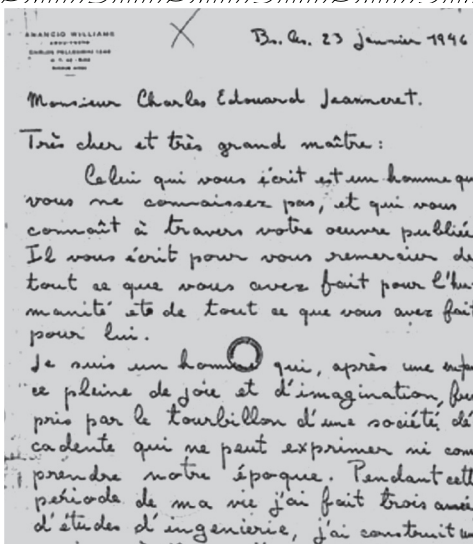 AMANCIO WILLIAMS
Bs. As. 23 janvier 1946
Monsieur Charles Edouard Jeanneret.
Très cher et très grand maître:
Celui qui vous écrit est un homme qu
vous ne connaissez pas, et qui vous
connaît à travers votre oeuvre publiée
Il vous écrit pour vous remercier de
tout ce que vous avez fait pour l'hu-
manité et de tout ce que vous avez fait
pour lui.
Je suis un homme qui, après une enfan
ce pleine de joie et d'imagination, fu
pris par le tourbillon d'une société dé
cadente qui ne peut exprimer ni com
prendre notre époque. Pendant cett
période de ma vie j'ai fait trois année
d'études d'ingenierie, j'ai construit un